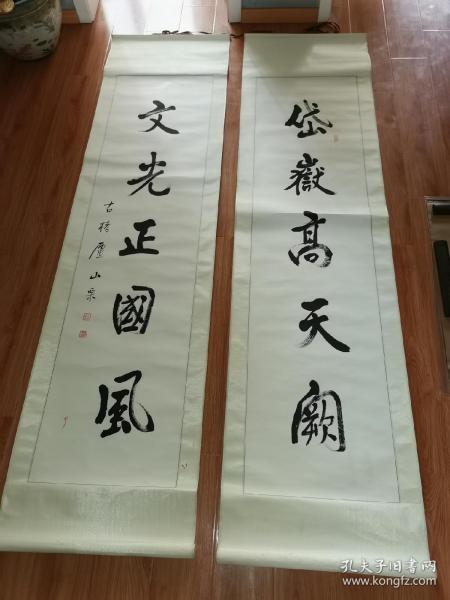 岱嶽高天闕
文光正國風
山栗
孔夫子旧书网
www.kongfz.com